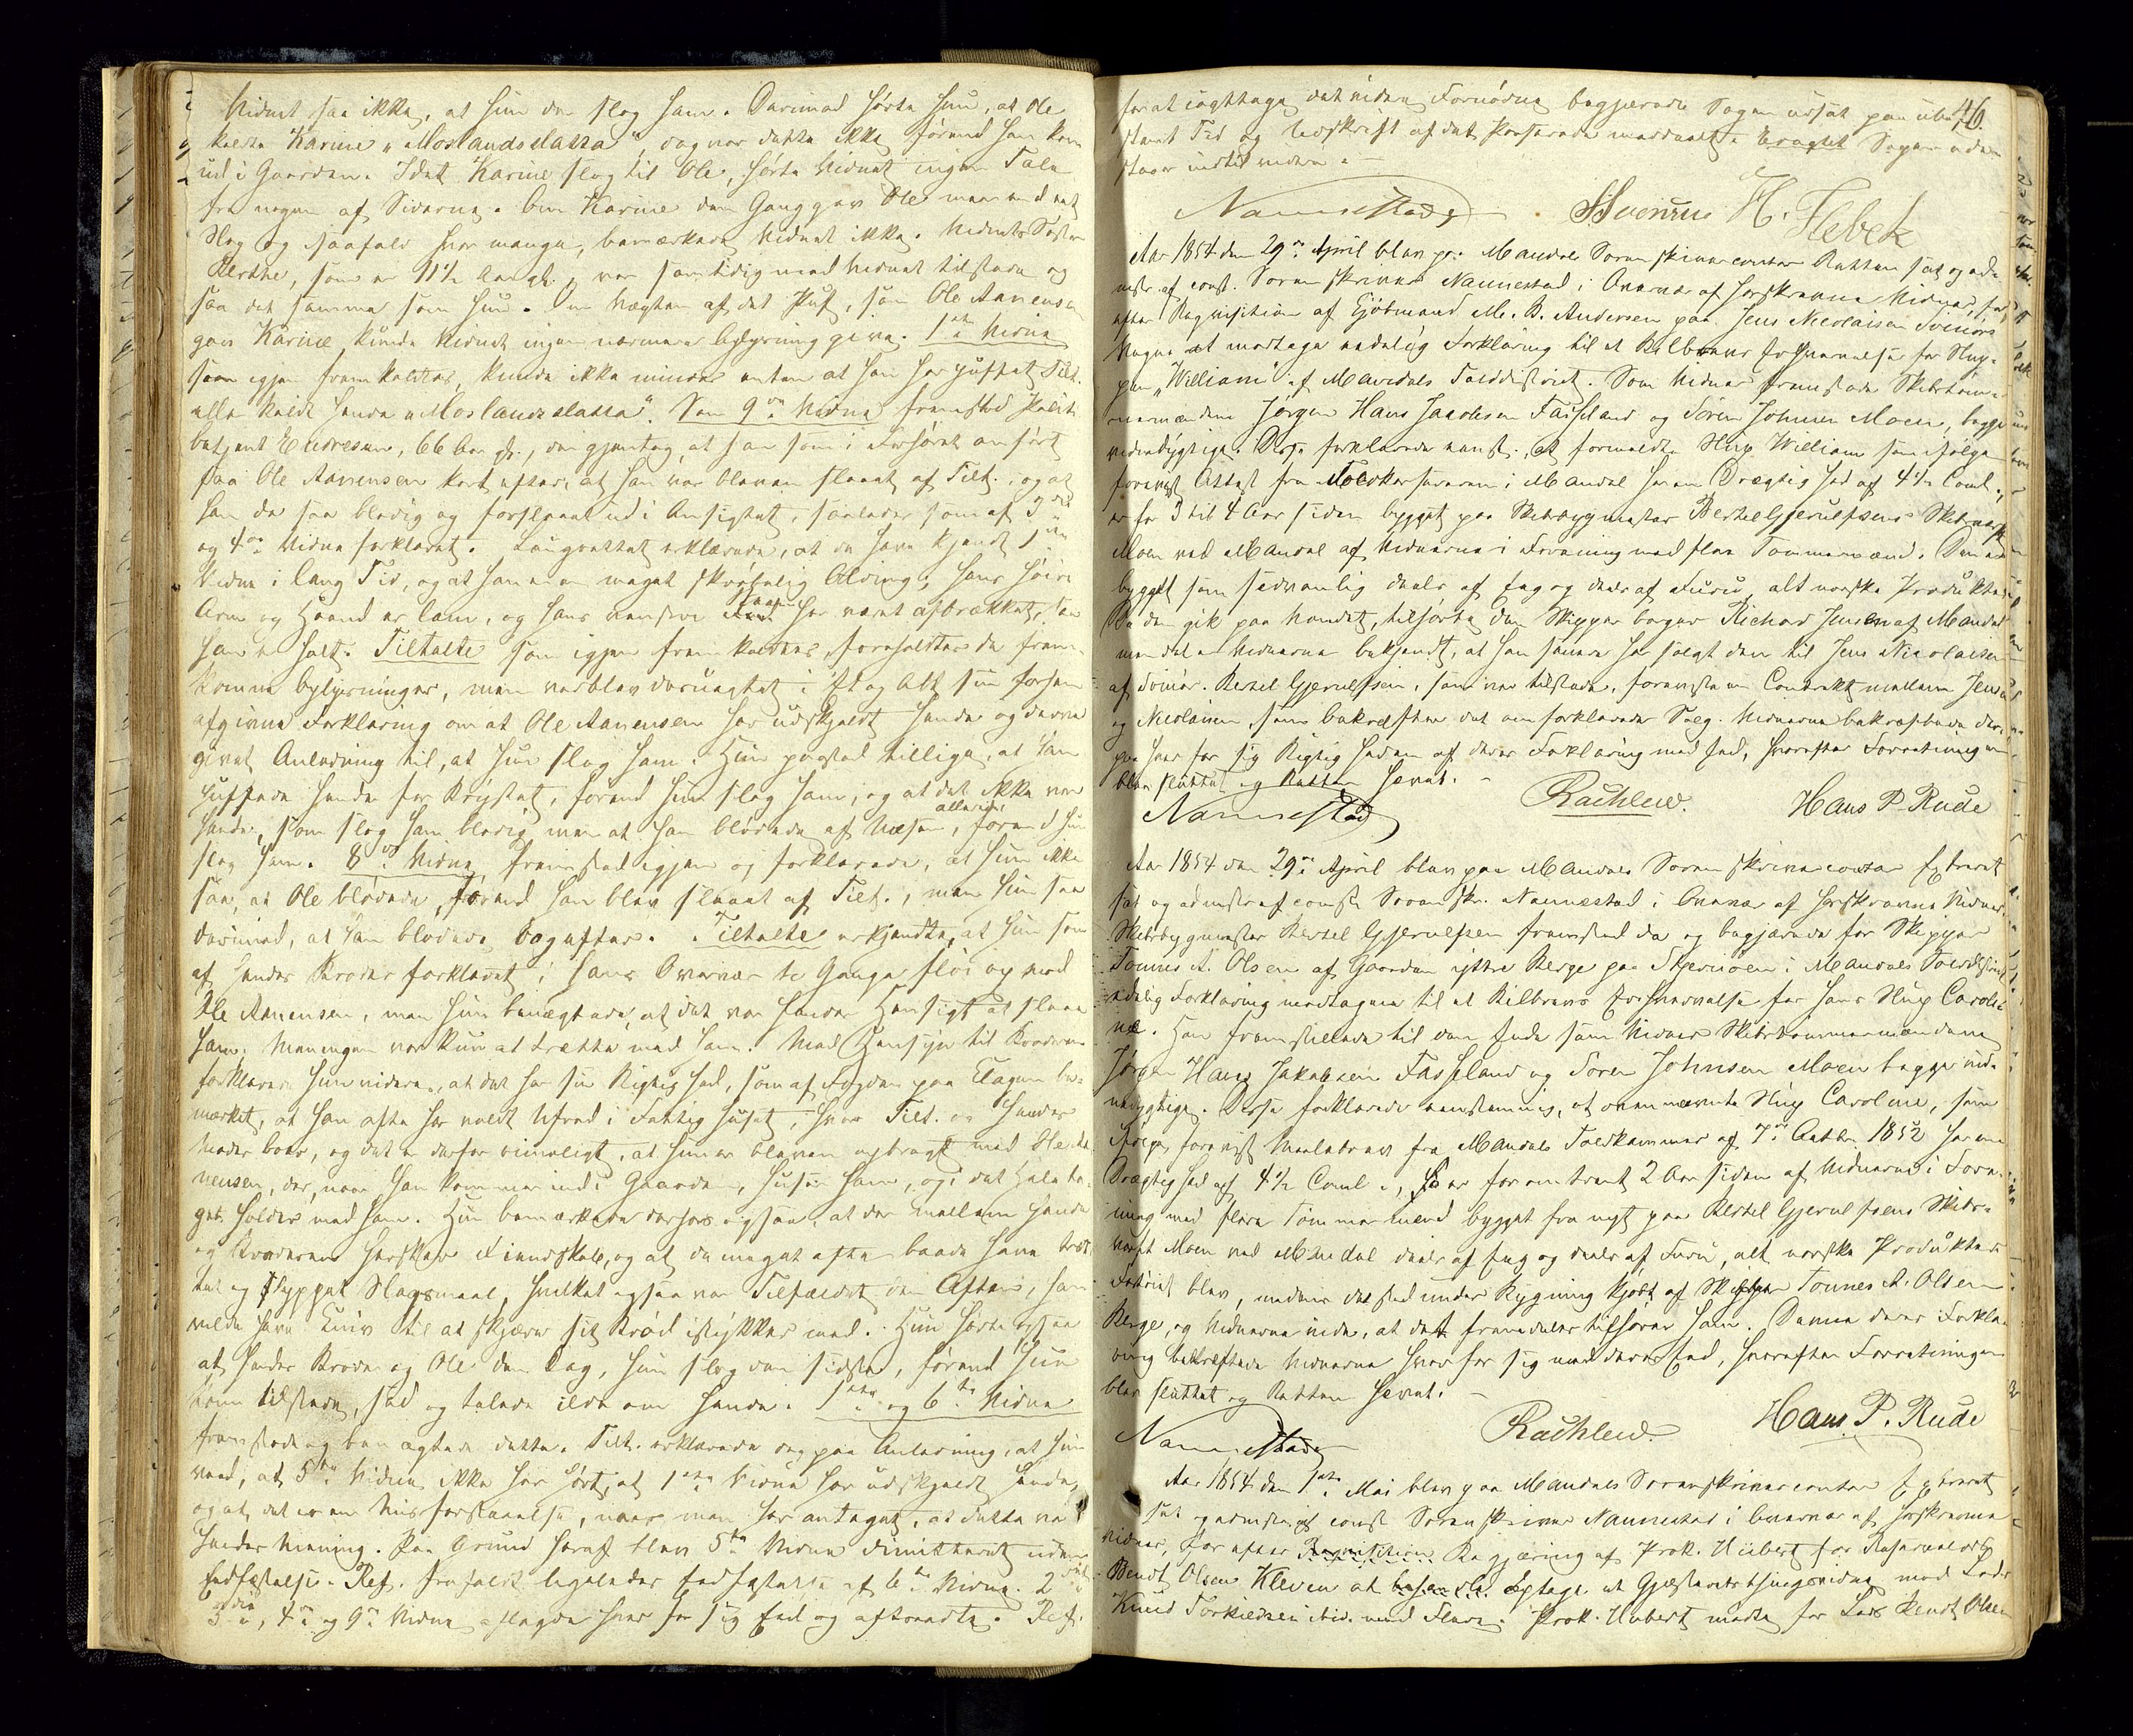 Vidnet saa ikke, at hun da slog ham. Derimod hørte hun, at Ole
kaldte Karine "Moslandsslatta", dog var dette ikke førend han kom
ud i Gaarden. Idet Karine slog til Ole, hørte Vidnet ingen Tale
fra nogen af Siderne. Om Karine den Gang gav Ole meer end eet
Slag og isaafald hvor mange, bemærkede Vidnet ikke. Vidnets Søster
Berthe, som er 11½ Aar gl., var samtidig med Vidnet tilstede og
saa det samme som hun. Om Vægten af det Puf, som Ole Aanensen
gav Karine kunde Vidnet ingen nærmere Oplysning give. 1ste Vidne
som igjen fremkaldtes, kunde ikke mindes enten at han har puffet Tilt.
eller kaldt hende "Moslandsslatta". Som 9de Vidne fremstod Politi
betjent Endresen, 66 Aar gl., der gjentog, at han som i Forhøret anført
saa Ole Aanensen kort efter, at han var bleven slaaet af Tilt., og at
han da saa blodig og forslaaet ud i Ansigtet, saaledes som af 3die
og 4de Vidne forklaret. Laugrettet erklærede, at de have kjendt 1ste
Vidne i lang Tid, og at han er en meget skrøbelig Olding; hans høire
Arm og Haand er lam, og hans venstre har været afbrækket,
han er halt. Tiltalte som igjen fremkaldtes, foreholdtes de frem-
komne Oplysninger, men verblev desuagtet i Et og Alt sin forhen
afgivne Forklaring om at Ole Aanensen har udskjældt hende og derved
givet Anledning til, at hun slog ham. Hun paastod tillige, at han
puffede hende for Brystet, førend hun slog ham, og at det ikke var
hende, som slog ham blodig, men at han blødede af Næsen, allerede førend hun
slog ham. 8de Vidne fremstod igjen og forklarede, at hun ikke
saa, at Ole blødede, førend han blev slaaet af Tilt., men hun saa
derimod, at han blødede bagefter. Tiltalte erkjendte, at hun som
af hendes Broder forklaret i hans Overvær to Gange fløi op mod
Ole Aanensen, men hun benægtede, at det var hendes Hensigt at slaae
ham. Meningen var kun at trætte med ham. Med Hensyn til Broderen
forklarer hun videre, at det har sin Rigtighed, som af Fogden paa Klagen be-
mærket, at han ofte har voldt Ufred i Fattighuset, hvor Tilt. og hendes
Moder boer, og det er derfor rimeligt, at hun er bleven opbragt mod Ole Aa-
nensen, der, naar han kommer ind i Gaarden, huser ham, og i det Hele ta-
get holder med ham. Hun bemærkede derhos ogsaa, at der mellem hende
og Broderen hersker Fiendskab, og at de meget ofte baade have træt-
tet og yppet Slagsmaal, hvilket ogsaa var Tilfældet den Aften, han
vilde have Kniv til at skjære sit Brød istykker med. Hun hørte ogsaa
at hendes Broder og Ole den Dag, hun slog den sidste, førend hun
kom tilstede, sad og talede ilde om hende. 1ste og 6te Vidne
fremstode og benægtede dette. Tilt. erklærede og paa Anledning, at hun
veed, at 5te Vidne ikke har hørt, at 1ste Vidne har udskjældt hende,
og at det er en Misforstaaelse, naar man har antaget, at dette var
hendes Mening. Paa Grund heraf blev 5te Vidne dimitteret uden
Edfæstelse. Ref. frafaldt ligeledes Edfæstelse af 6te Vidne. 2det
3die, 4de og 9de Vidne aflagde hver for sig Eed og aftraadte. Ref.
46.
for at iagttage det videre Fornødne begjærede Sagen udsat paa ube-
stemt Tid og Udskrift af det Passerede meddeelt. Eragtet Sagen uden
staaer indtil videre.
Nannestad H. Flebek
Aar 1854 den 29de April blev paa Mandals Sorenskrivercontor Retten sat og ad-
mstr. af const. Sorenskriver Nannestad i Overvær af herskrevne Vidner, for
efter Reqvisition af Kjøbmand M. B. Andersen paa Jens Nicolaisen Svinørs
Vegne at modtage eedelig Forklaring til et Bilbrevs Erhvervelse for Slup-
pen "William" af Mandals Tolddistrict. Som Vidner fremstode Skibstøm-
mermændene Jørgen Hans Jacobsen Faseland og Søren Johnsen Moen, begge
vidnedygtige. Disse forklarede eenst., at formeldte Slup William som ifølge
forevist Attest fra Toldkassereren i Mandal har en Drægtighed af 4½ Coml.,
er for 3 til 4 Aar siden bygget paa Skibsbygmester Berthel Gjerulfsens Skibsverft
Moen ved Mandal af Vidnerne i Forening med flere Tømmermænd. Den er
bygget som sædvanlig deels af Eeg og deels af Furu, alt norske Produkter.
Da den gik paa Vandet, tilhørte den Skipper borger Richard Jensen af Mandal
men det er Vidnerne bekjendt, at han senere har solgt den til Jens Nicolaisen
af Svinør. Bertel Gjerulfsen, som var tilstede, foreviste en Contrakt mellem Jensen
og Nicolaisen som bekræfter det om forklarede Salg. Vidnerne bekræftede der-
paa hver for sig Rigtigheden af deres Forklaring med Eed, hvorefter Forretningen
blev sluttet og Retten hævet.
Nannestad Rachlew. Hans P. Rude
Aar 1854 den 29de April blev paa Mandals Sorenskrivercontor Extraret
sat og admstr. af const. Sorenskr. Nannestad i Overvær af herskrevne Vidner.
Skibsbygmester Bertel Gjerulfsen fremstod da og begjærede for Skipper
Tønnes A. Olsen af Gaarden yttre Berge paa Skjernøen i Mandals Tolddistrict
edelig Forklaring modtagen til et Bilbrevs Erhvervelse for hans Slup Caroli-
ne. Han fremstillede til den Ende som Vidner Skibstømmermændene
Jørgen Hans Jakobsen Fasseland og Søren Johnsen Moen begge vid-
nedygtige. Disse forklarede eenstemmig, at ovennævnte Slup Caroline, som
ifølge forevist Maalebrev fra Mandals Toldkammer af 7de Octbr. 1852 har en
Drægtighed af 4½ Coml., er for omtrent 2 Aar siden af Vidnerne i Fore-
ning med flere Tømmermænd bygget fra nyt paa Bertel Gjerulfsens Skibs-
verft Moen ved Mandal deels af Eeg og deels af Furu, alt norske Produkter.
Fartøiet blev, medens det stod under Bygning kjøbt af Skipper Tønnes A. Olsen
Berge, og Vidnerne vide, at det fremdeles tilhører ham. Denne deres Forkla-
ring bekræftede Vidnerne hver for sig med deres Eed, hvorefter Forretningen
blev sluttet og Retten hævet.
Nannestad Rachlew. Hans P. Rude
Aar 1854 den 1ste Mai blev paa Mandals Sorenskrivercontor Extraret
sat og admstr. af const. Sorenskriver Nannestad i Overvær af herskrevne
Vidner, for efter Begjæring af Prok. Hubert for
Bendt Olsen Kleven at optage et Gjæsteretsthingsvidne mod Lods
Knud Torkildsen ibid. med Flere. Prok. Hubert mødte for Lods Bendt Olsen